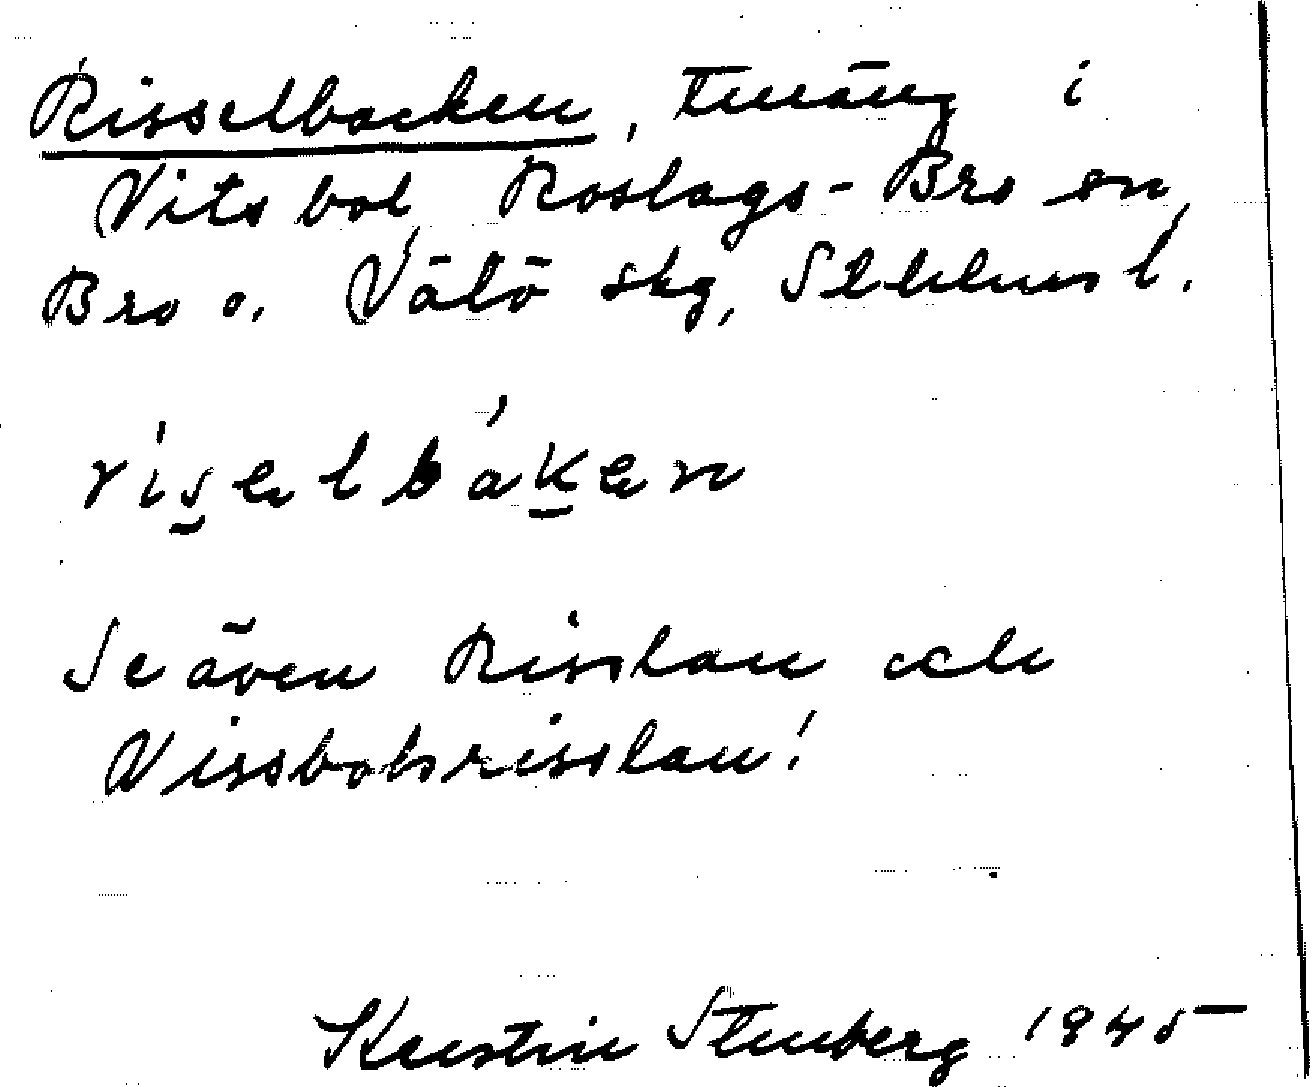 Risselbacken, tmäng i
Vitsbol, Roslags-Bro sn,
Bro o. Vätö skg, Sthlms l.
risəlbakən
Se även Risslan och
Vissbolsrisslan!
Kerstin Stenberg 1945